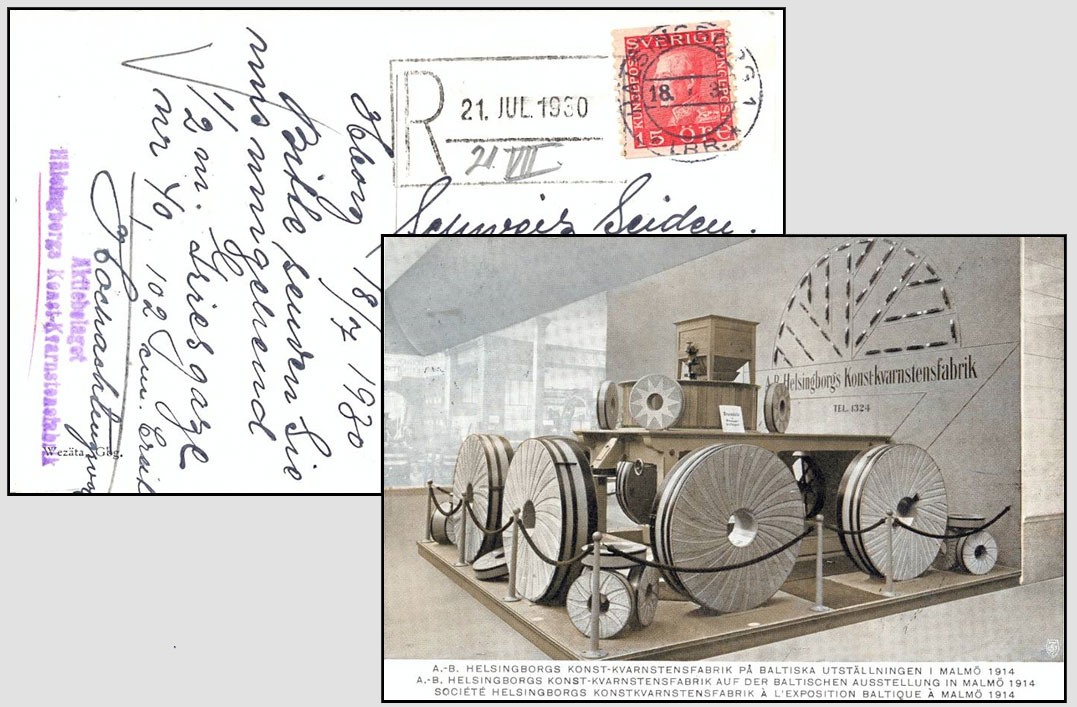 SVERIGE
15 ÖRE
18.
R
21. JUL. 1930
21 VII
Hborg 18/7 1930
Schweiz Seiden.
Bitte senden Sie
uns umgehend
1/2 m. Griesgaze
nr 4/0, 102 cm.
Hochachtungsvoll
Aktiebolaget
Hälsingborgs Konst-Kvarnstensfabrik
Wezäta, Gbg.
A.B. Helsingborgs Konst-kvarnstensfabrik
TEL. 1324
A.-B. HELSINGBORGS KONST-KVARNSTENSFABRIK PÅ BALTISKA UTSTÄLLNINGEN I MALMÖ 1914
A.-B. HELSINGBORGS KONST-KVARNSTENSFABRIK AUF DER BALTISCHEN AUSSTELLUNG IN MALMÖ 1914
SOCIÉTÉ HELSINGBORGS KONSTKVARNSTENSFABRIK À L'EXPOSITION BALTIQUE À MALMÖ 1914